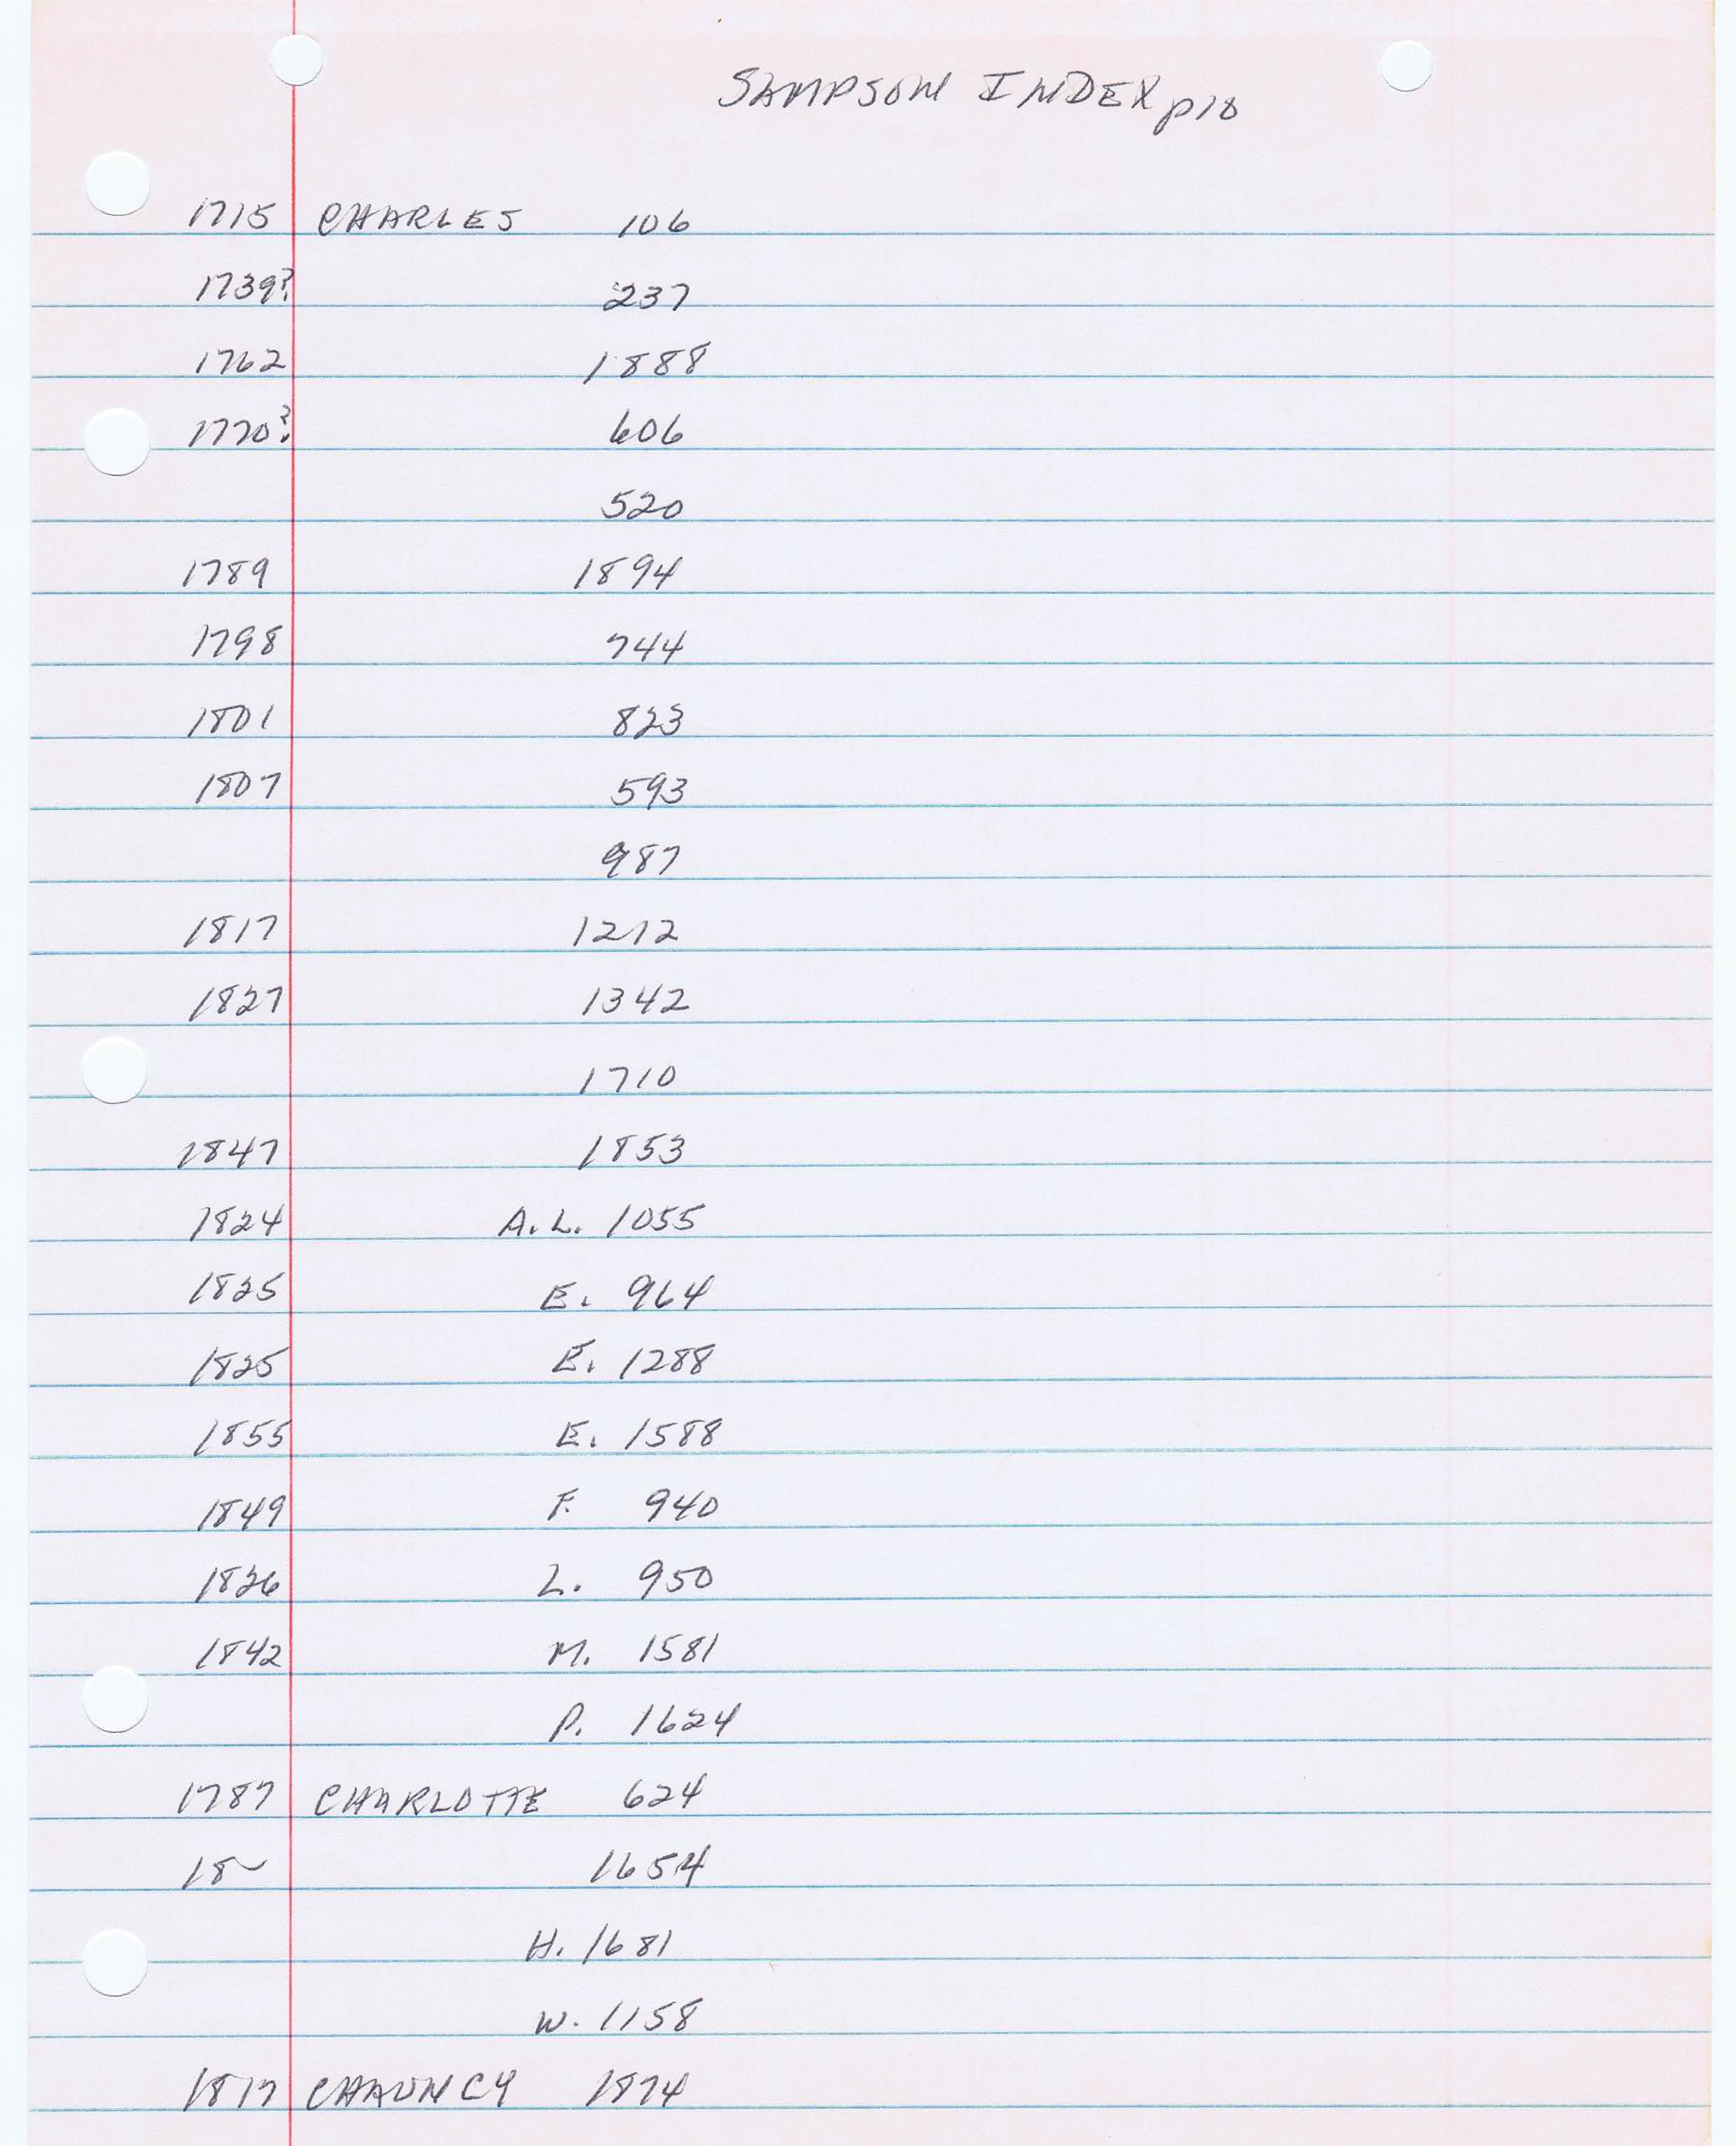 SAMPSON INDEX p10
1715 CHARLES 106
1739? 237
1762 1888
1770? 606
520
1789 1894
1798 744
1801 823
1807 593
987
1817 1212
1827 1342
1710
1847 1853
1824 A.L. 1055
1825 E. 964
1825 E. 1288
1855 E. 1588
1849 F. 940
1826 L. 950
1842 M. 1581
P. 1624
1787 CHARLOTTE 624
18~ 1654
H. 1681
W. 1158
1817 CHAUNCY 1874